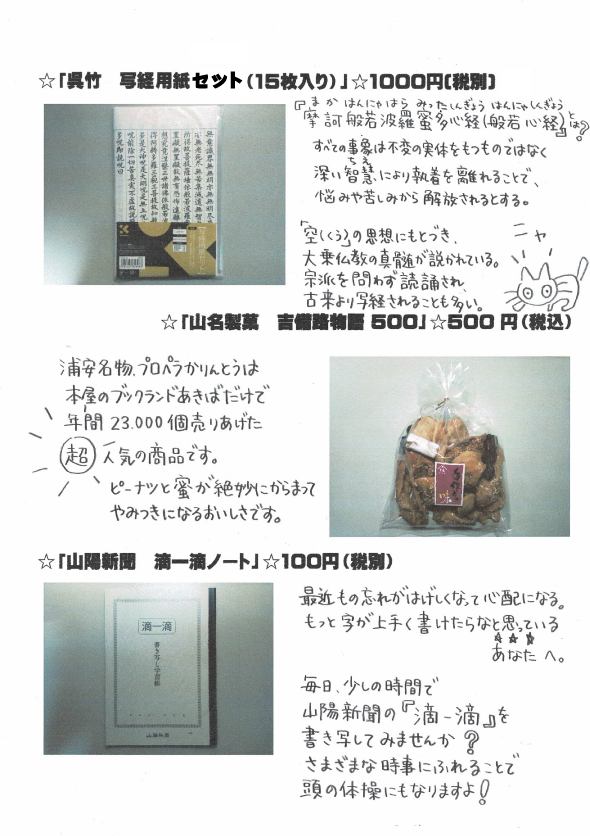 ☆「呉竹　写経用紙セット（15枚入り）」☆1000円（税別）
まか はんにゃはら みったしんぎょう はんにゃしんぎょう
『摩訶般若波羅蜜多心経(般若心経)』とは?
すべての事象は不変の実体をもつものではなく
深い智慧により執着を離れることで、
ちえ
悩みや苦しみから解放されるとする。
「空(くう)」の思想にもとづき、
大乗仏教の真髄が説かれている。
宗派を問わず読誦され、
古来より写経されることも多い。
ニャ
☆「山名製菓　吉備路物語 500」☆500 円（税込）
浦安名物、プロペラかりんとうは
本屋のブックランドあきばだけで
年間 23.000 個売りあげた
超 人気の商品です。
ピーナツと蜜が絶妙にからまって
やみつきになるおいしさです。
☆「山陽新聞　滴一滴ノート」☆100円（税別）
滴一滴
書き写し学習帳
山陽新聞
最近もの忘れがはげしくなって心配になる。
もっと字が上手く書けたらなと思っている
あなたへ。
毎日、少しの時間で
山陽新聞の『滴一滴』を
書き写してみませんか?
さまざまな時事にふれることで
頭の体操にもなりますよ!